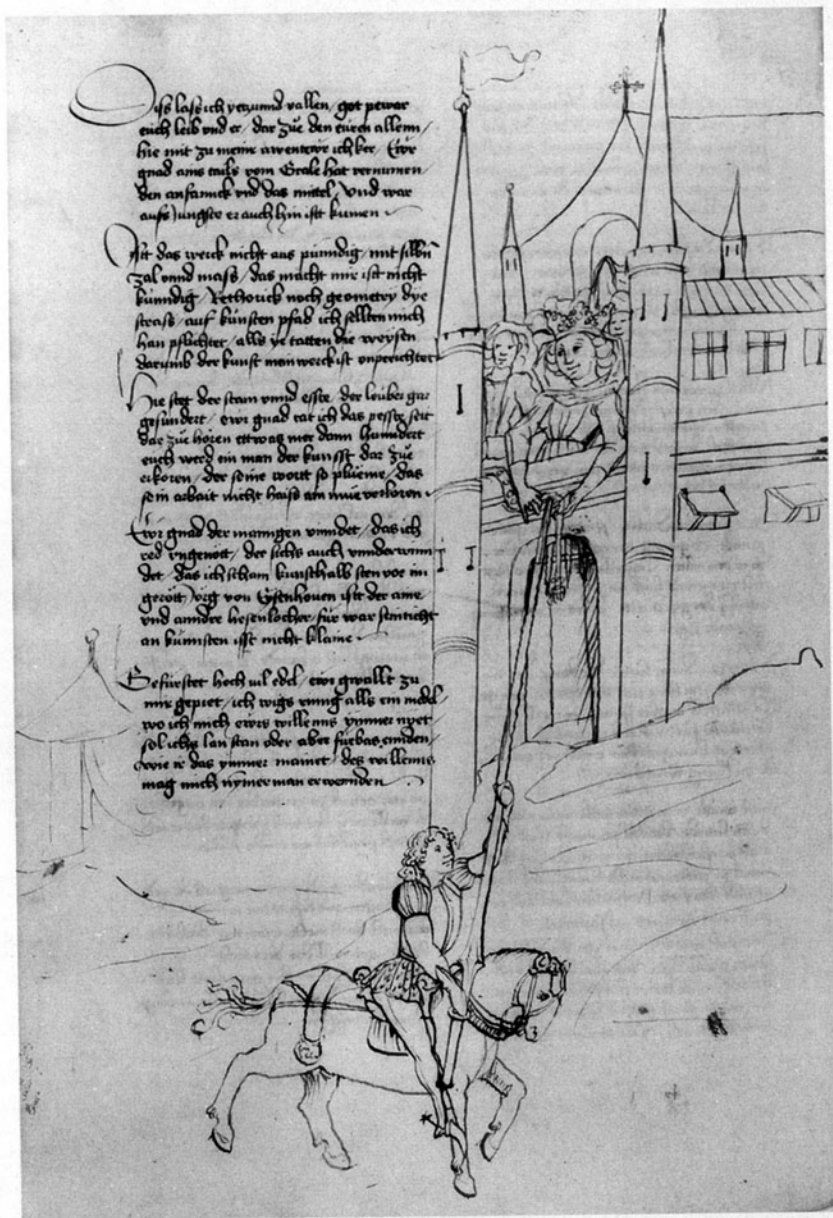 Diss lass ich yetzunnd vallen / got pewar
euch leib vnd er / dar zue den euren allenn /
hie mit zu meiner awentewr ich ker / Ewr
gnad ains tails vom Grale hat vernumen /
den anfannck vnd das mittel / vnd war
aufs Jungste er auch hin ist kumen
Ist das werck nicht aus pünndig / mit silbñ
zal vnnd mass / das macht mir ist nicht
künndig / Rethorick noch geometry dye
strass / auf künsten pfad ich sellten mich
han pflichtet / alls ye tatten die weysen
darumb der kunst mein werck ist vnperichtet
Hie steg der stam vnnd esste / der leuber gar
gesundert / ewr gnad rat ich das pesste seit
dar zue hören ettwas mer dann hunndert
euch werd ein man der kunsst dar zue
erkoren / der seine wortt so plueme / das
sein arbait nicht haiss am mue verloren
Ewr gnad der mainigen vinndet / das ich
red vngenött / der sichs auch vnnderwinn
det / das ich scham kunsthalb sten vor im
gerött / Jorg von Eysenhouen isst der aine
vnd anndre hesenlocher / für war sein ticht
an künnsten isst nicht klaine
Gefürstet hoch vil edel / ewr gwallt zu
mir gepiet / ich wigs ring alls ein medel
wo ich mich ewrs willenns ymmer nyet
sol ichs lan stan oder aber fürbas ennden /
wie ir das ymmer mainet / des willenns
mag mich nymer man erwennden